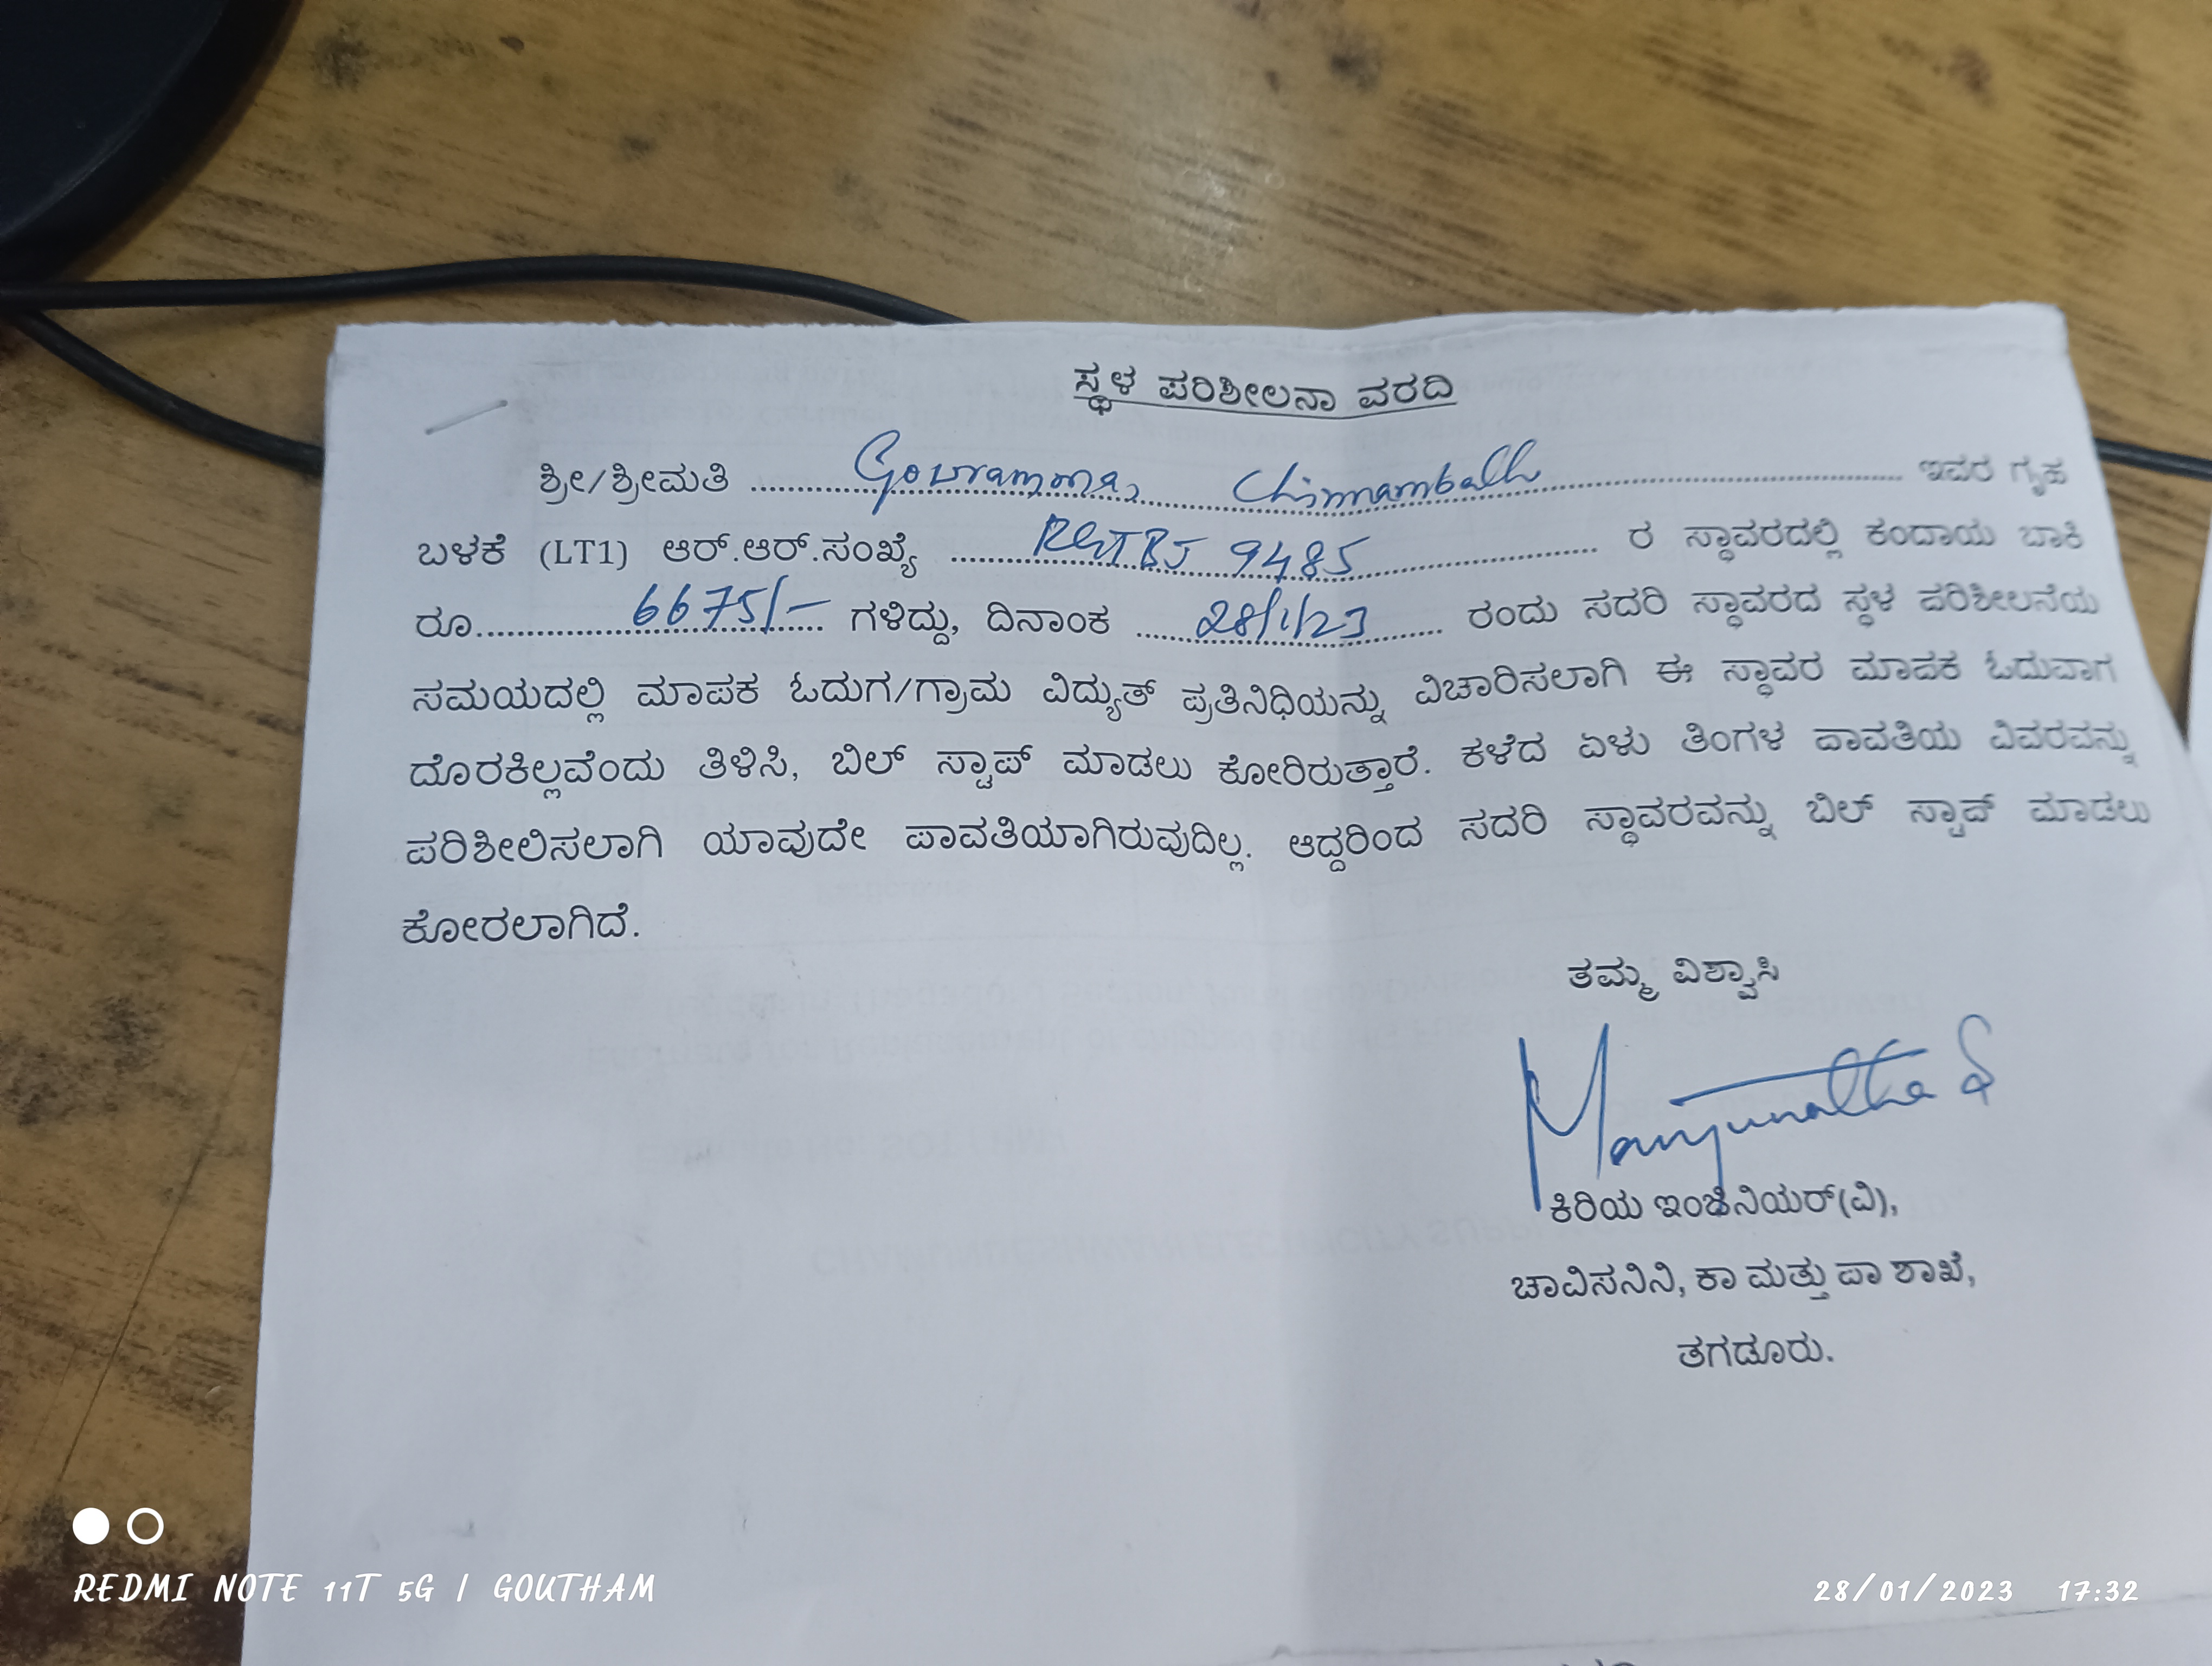 ಸ್ಥಳ ಪರಿಶೀಲನಾ ವರದಿ
ಶ್ರೀ/ಶ್ರೀಮತಿ .......... Gouramma, Chinnamballi .......... ಇವರ ಗೃಹ
ಬಳಕೆ (LT1) ಆರ್.ಆರ್.ಸಂಖ್ಯೆ .......... 9485 .......... ರ ಸ್ಥಾವರದಲ್ಲಿ ಕಂದಾಯ ಬಾಕಿ
ರೂ.......... 6675/- .......... ಗಳಿದ್ದು, ದಿನಾಂಕ .......... 28/1/23 .......... ರಂದು ಸದರಿ ಸ್ಥಾವರದ ಸ್ಥಳ ಪರಿಶೀಲನೆಯ
ಸಮಯದಲ್ಲಿ ಮಾಪಕ ಓದುಗ/ಗ್ರಾಮ ವಿದ್ಯುತ್ ಪ್ರತಿನಿಧಿಯನ್ನು ವಿಚಾರಿಸಲಾಗಿ ಈ ಸ್ಥಾವರ ಮಾಪಕ ಓದುವಾಗ
ದೊರಕಿಲ್ಲವೆಂದು ತಿಳಿಸಿ, ಬಿಲ್ ಸ್ಟಾಪ್ ಮಾಡಲು ಕೋರಿರುತ್ತಾರೆ. ಕಳೆದ ಏಳು ತಿಂಗಳ ಪಾವತಿಯ ವಿವರವನ್ನು
ಪರಿಶೀಲಿಸಲಾಗಿ ಯಾವುದೇ ಪಾವತಿಯಾಗಿರುವುದಿಲ್ಲ. ಆದ್ದರಿಂದ ಸದರಿ ಸ್ಥಾವರವನ್ನು ಬಿಲ್ ಸ್ಟಾಪ್ ಮಾಡಲು
ಕೋರಲಾಗಿದೆ.
ತಮ್ಮ ವಿಶ್ವಾಸಿ
Manjunatha S
ಕಿರಿಯ ಇಂಜಿನಿಯರ್(ವಿ),
ಚಾವಿಸನಿನಿ, ಕಾ ಮತ್ತು ಪಾ ಶಾಖೆ,
ತಗಡೂರು.
REDMI NOTE 11T 5G | GOUTHAM
28/01/2023 17:32